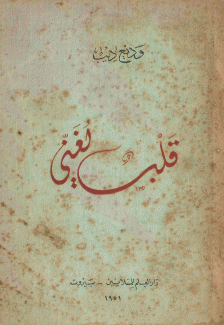 وديع ديب
قلب يغني
دار العلم للملايين - بيروت
١٩٥١